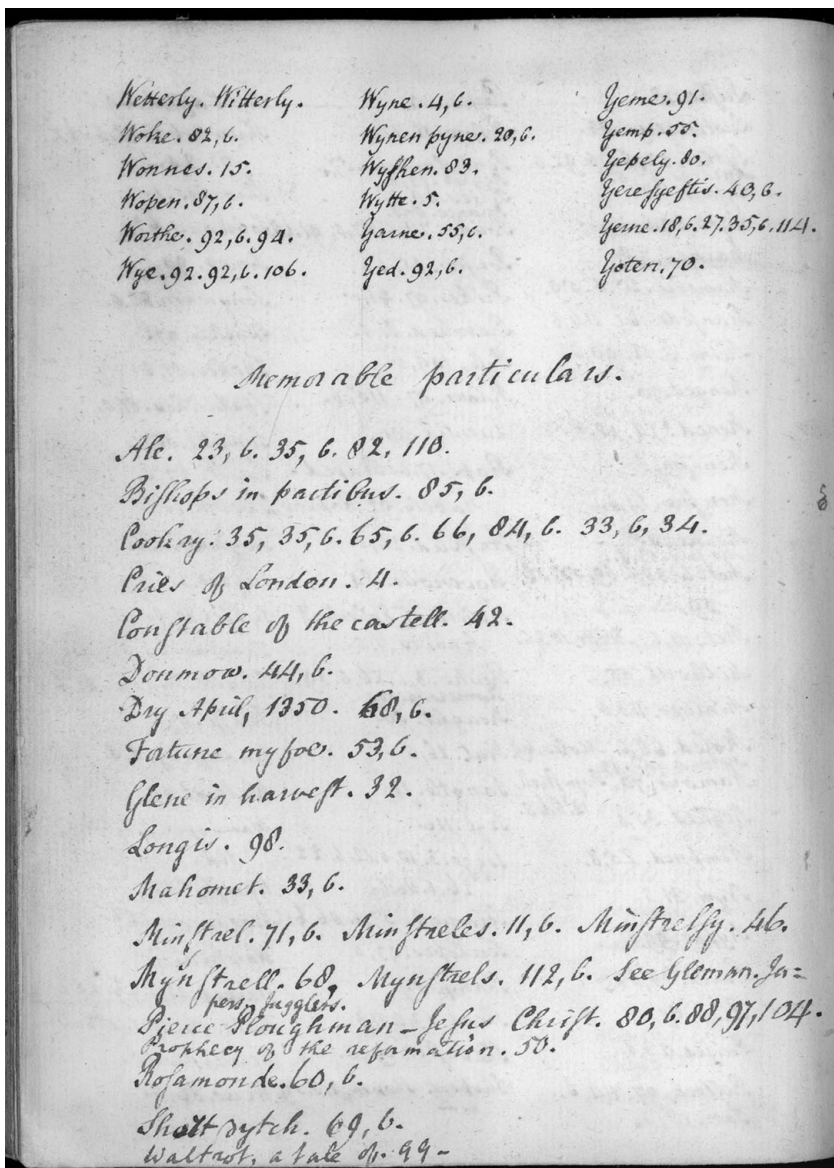 Wetterly. Witterly.
Woke. 82,b.
Wonnes. 15.
Wopen. 87,b.
Worthe. 92,b.94.
Wye. 92.92,b.106.
Wyne. 4,b.
Wynen pyne. 20,b.
Wyſhen. 83.
Wytte. 5.
Yarne. 55,b.
Yed. 92,b.
Yeme. 91.
Yemp. 55.
Yepely. 80.
Yereſyeftis. 40,b.
Yerne. 18,b.27.35,b.114.
Yoten. 70.
Memorable particulars.
Ale. 23,b. 35,b. 82, 110.
Biſhops in partibus. 85,b.
Cookry. 35, 35,b. 65,b. 66, 84,b. 33,b, 34.
Cries of London. 4.
Conſtable of the castell. 42.
Donmow. 44,b.
Dry April, 1350. 68,b.
Fortune my foe. 53,b.
Glene in harveſt. 32.
Longis. 98.
Mahomet. 33,b.
Minſtrel. 71,b. Minſtreles. 11,b. Minſtrelſy. 46.
Mynſtrell. 68, Mynſtrels. 112,b. See Gleman. Ja=
pers. Jugglers.
Pierce Ploughman – Jeſus Chriſt. 80,b.88,97,104.
Prophecy of the reformation. 50.
Roſamonde. 60,b.
Shottdytch. 69,b.
Waltrot, a tale of. 99 –